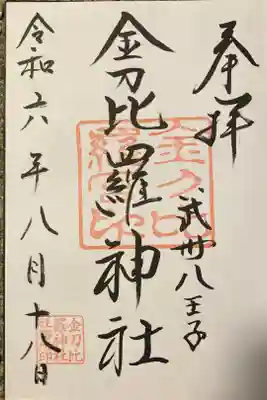 奉拝
武州八王子
金刀比羅神社
令和六年八月十八日
金刀比
羅宮印
金刀比
羅神社
社務印